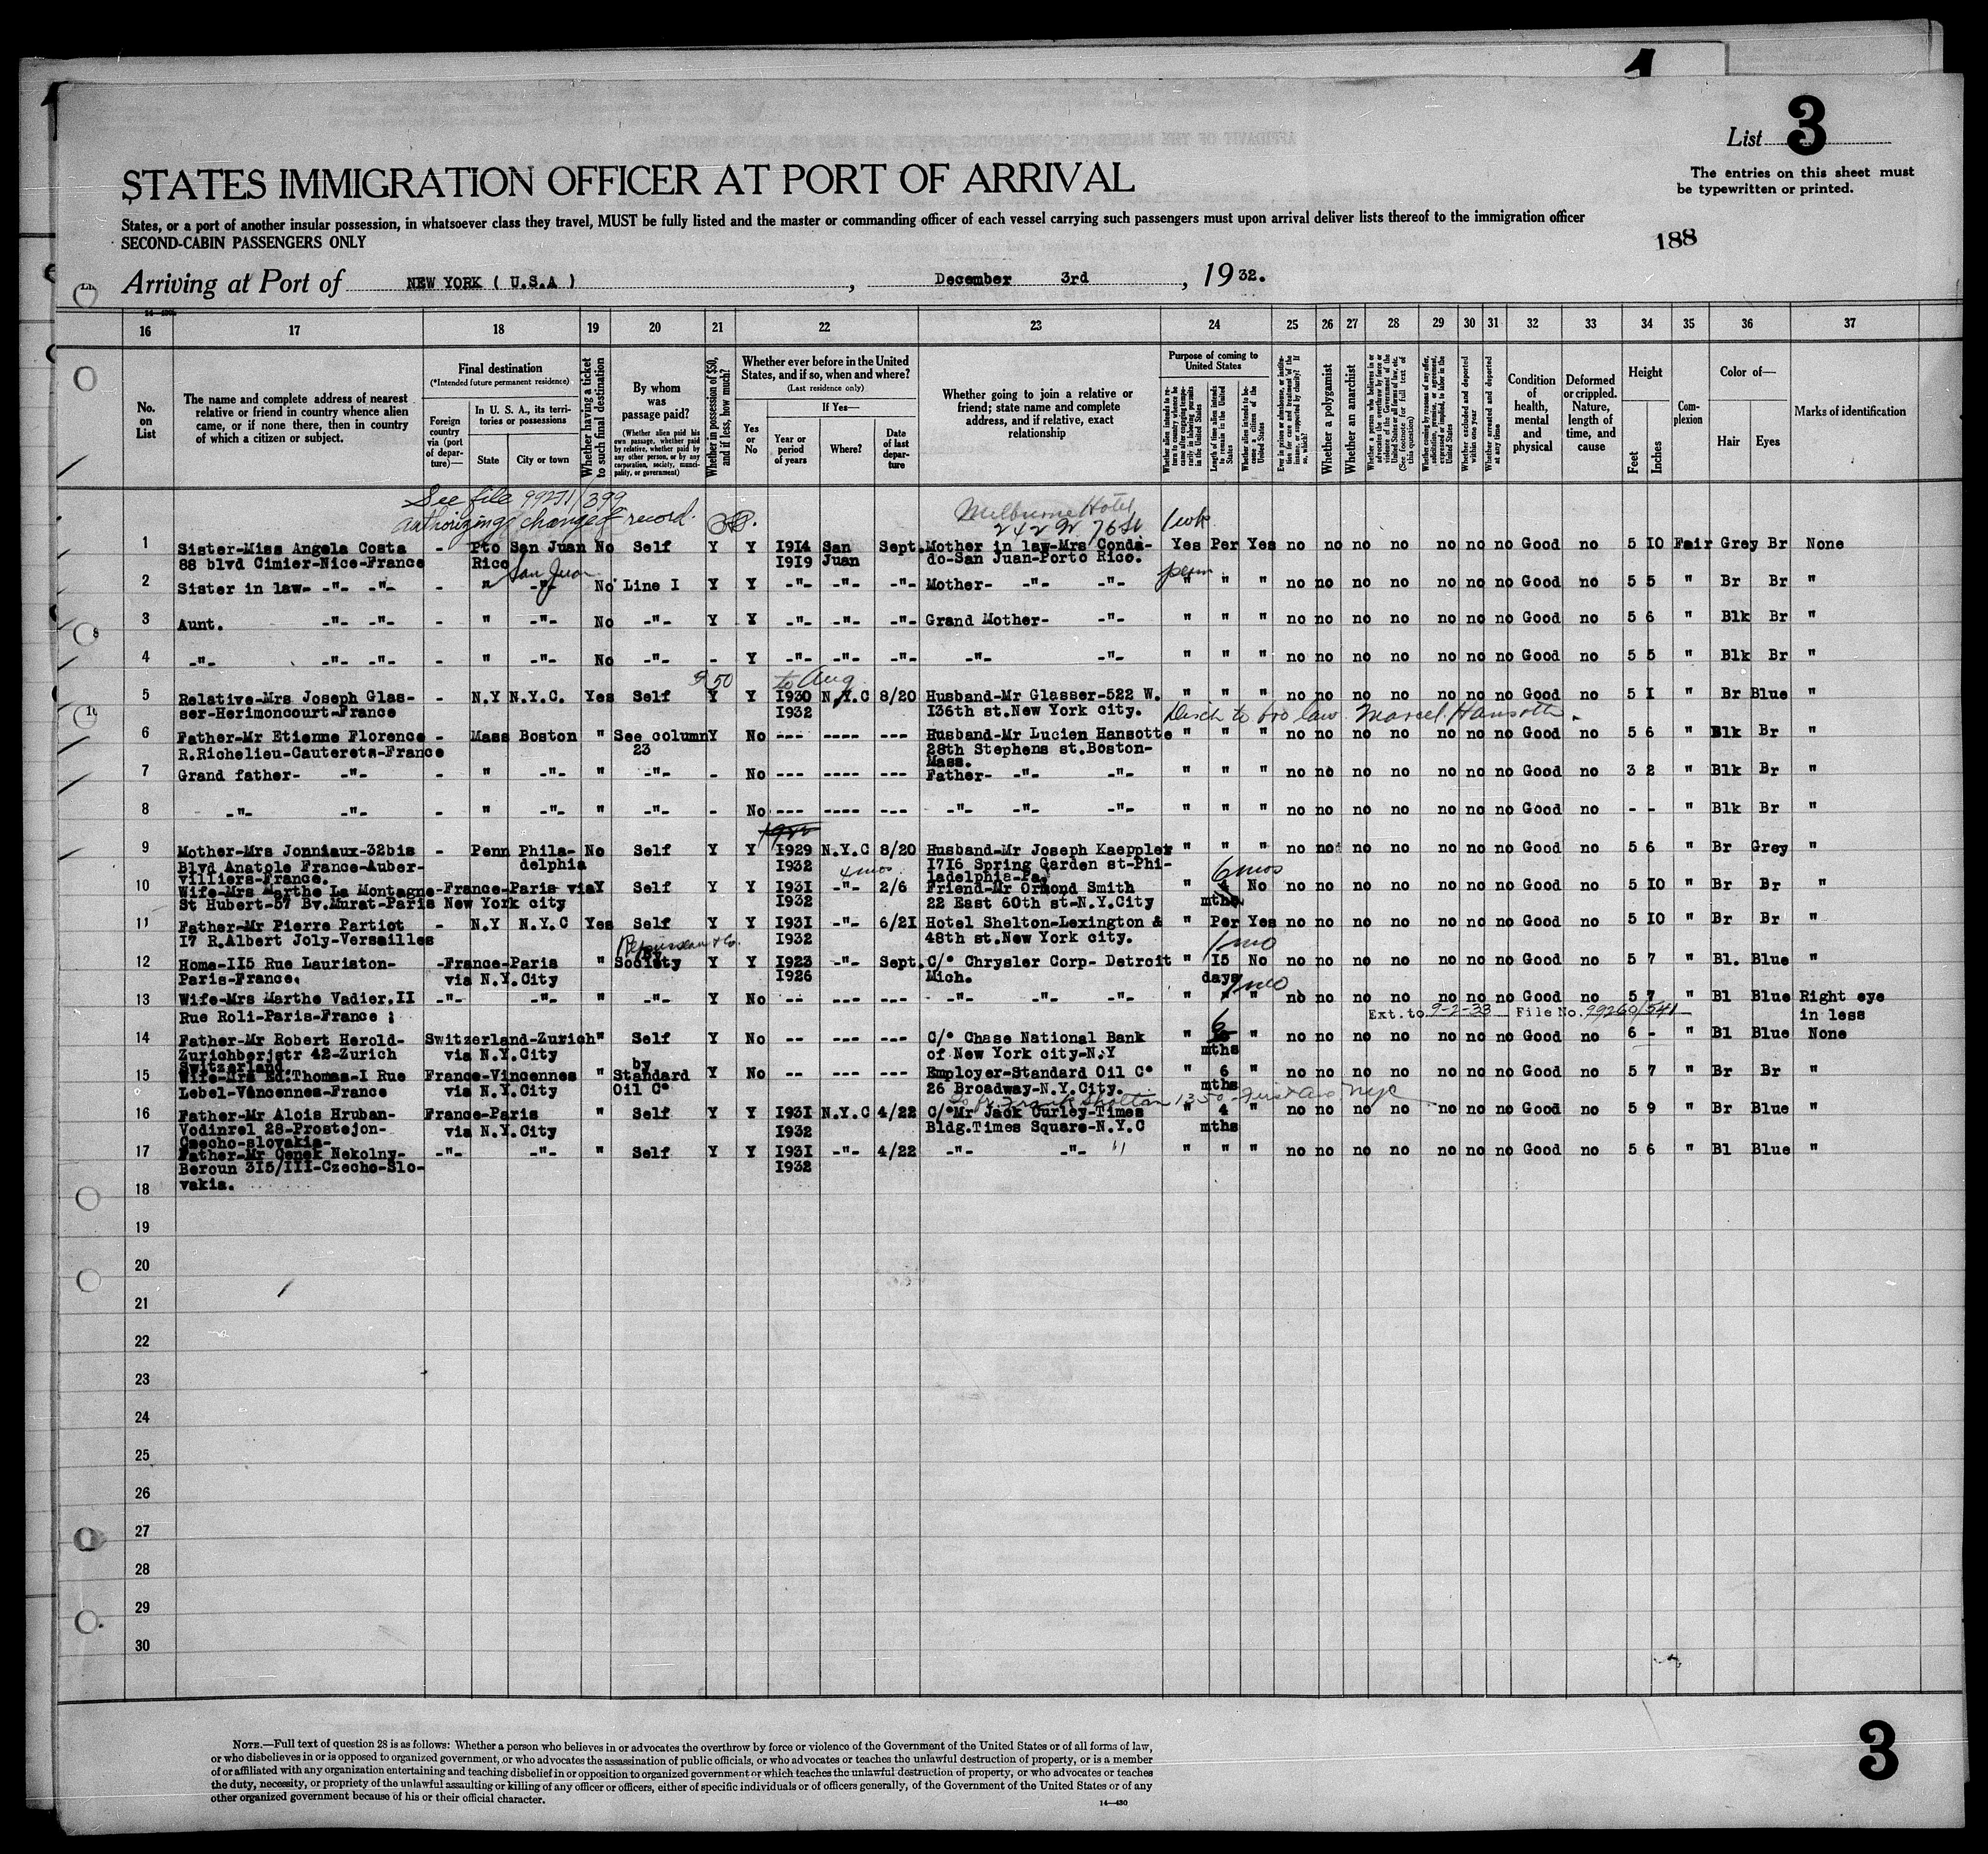 List 3
The entries on this sheet must
be typewritten or printed.
STATES IMMIGRATION OFFICER AT PORT OF ARRIVAL
States, or a port of another insular possession, in whatsoever class they travel, MUST be fully listed and the master or commanding officer of each vessel carrying such passengers must upon arrival deliver lists thereof to the immigration officer
SECOND-CABIN PASSENGERS ONLY
188
Arriving at Port of NEW YORK ( U.S.A ) , December 3rd , 19 32.
16 17 18 19 20 21 22 23 24 25 26 27 28 29 30 31 32 33 34 35 36 37
No. on List
The name and complete address of nearest relative or friend in country whence alien came, or if none there, then in country of which a citizen or subject.
Final destination
(*Intended future permanent residence)
Foreign country via (port of departure)—
In U. S. A., its territories or possessions
State
City or town
Whether having a ticket to such final destination
By whom was passage paid?
(Whether alien paid his own passage, whether paid by relative, whether paid by any other person, or by any corporation, society, municipality, or government)
Whether in possession of $50, and if less, how much?
Whether ever before in the United States, and if so, when and where?
(Last residence only)
Yes or No
If Yes—
Year or period of years
Where?
Date of last departure
Whether going to join a relative or friend; state name and complete address, and if relative, exact relationship
Purpose of coming to United States
Whether a polygamist
Whether an anarchist
Condition of health, mental and physical
Deformed or crippled. Nature, length of time, and cause
Height
Feet
Inches
Complexion
Color of—
Hair
Eyes
Marks of identification
See file 99271/399
authorizing change of record.
Melburne Hotel
242 W 76 St
1 wk
1 Sister-Miss Angela Costa - Pto San Juan No Self Y Y 1914 San Sept. Mother in law-Mrs Conda- Yes Per Yes no no no no no no no Good no 5 10 Fair Grey Br None
88 blvd Cimier-Nice-France Rico 1919 Juan do-San Juan-Porto Rico.
San Juan perm
2 Sister in law- -"- -"- - " -"- No Line I Y Y -"- -"- -"- Mother- -"- -"- " " " no no no no no no no Good no 5 5 " Br Br "
3 Aunt. -"- -"- - " -"- No -"- Y Y -"- -"- -"- Grand Mother- -"- " " " no no no no no no no Good no 5 6 " Blk Br "
4 -"- -"- -"- - " -"- No -"- - Y -"- -"- -"- -"- -"- " " " no no no no no no no Good no 5 5 " Blk Br "
50 to Aug
5 Relative-Mrs Joseph Glas- - N.Y N.Y.C. Yes Self Y Y 1930 N.Y.C 8/20 Husband-Mr Glasser-522 W. " " " no no no no no no no Good no 5 1 " Br Blue "
ser-Herimoncourt-France 1932 136th st.New York city.
Disch to bro law Marcel Hansotte.
6 Father-Mr Etienne Florence - Mass Boston " See column Y No --- ---- --- Husband-Mr Lucien Hansotte " " " no no no no no no no Good no 5 6 " Blk Br "
R.Richelieu-Cauterets-France 23 28th Stephens st.Boston-
Mass.
7 Grand father- -"- - " -"- " -"- - No --- ---- --- Father- -"- -"- " " " no no no no no no no Good no 3 2 " Blk Br "
8 -"- -"- - " -"- " -"- - No --- ---- --- -"- -"- -"- " " " no no no no no no no Good no - - " Blk Br "
9 Mother-Mrs Jonniaux-32bis - Penn Phila- No Self Y Y 1929 N.Y.C 8/20 Husband-Mr Joseph Kaeppler " " " no no no no no no no Good no 5 6 " Br Grey "
Blvd Anatole France-Auber- delphia 1932 1716 Spring Garden st-Phi-
villiers-France. 4 mos ladelphia-Pa. 6 mos
10 Wife-Mrs Marthe La Montagne-France-Paris via Y Self Y Y 1931 -"- 2/6 Friend-Mr Ormond Smith " 4 No no no no no no no no Good no 5 10 " Br Br "
St Hubert-57 Bv.Murat-Paris New York city 1932 22 East 60th st-N.Y.City mths
11 Father-Mr Pierre Partiot - N.Y N.Y.C Yes Self Y Y 1931 -"- 6/21 Hotel Shelton-Lexington & " Per Yes no no no no no no no Good no 5 10 " Br Br "
17 R.Albert Joly-Versailles 1932 48th st.New York city.
By 1 mo
12 Home-115 Rue Lauriston- -France-Paris " Society Y Y 1923 -"- Sept. C/° Chrysler Corp- Detroit " 15 No no no no no no no no Good no 5 7 " Bl. Blue "
Paris-France. via N.Y.City 1926 Mich. days
1 mo
13 Wife-Mrs Marthe Vadier.II -"- -"- " -"- Y No -- --- --- -"- -"- -"- " " " no no no no no no no Good no 5 7 " Bl Blue Right eye
Rue Roli-Paris-France ; Ext. to 9-2-33 File No. 99260/541 in less
6
14 Father-Mr Robert Herold- Switzerland-Zurich " Self Y No -- --- --- C/° Chase National Bank " no no no no no no no Good no 6 - " Bl Blue None
Zurichberjstr 42-Zurich via N.Y.City of New York city-N.Y mths
Switzerland. by
15 Wife-Mrs Ed.Thomas-I Rue France-Vincennes " Standard Y No -- --- --- Employer-Standard Oil C° " 6 " no no no no no no no Good no 5 7 " Br Br "
Lebel-Vincennes-France via N.Y.City Oil C° 26 Broadway-N.Y.City. mths
16 Father-Mr Alois Hruban- France-Paris " Self Y Y 1931 N.Y.C 4/22 C/°Mr Jack Curley-Times " 4 " no no no no no no no Good no 5 9 " Br Blue "
Vodinrel 28-Prostejon- via N.Y.City 1932 Bldg.Times Square-N.Y.C mths
Czecho-slovakia-
17 Father-Mr Cenek Nekolny- -"- -"- " Self Y Y 1931 -"- 4/22 -"- -"- " " " " no no no no no no no Good no 5 6 " Bl Blue "
Beroun 315/III-Czecho-Slo- 1932
18 vakia.
19
20
21
22
23
24
25
26
27
28
29
30
NOTE.—Full text of question 28 is as follows: Whether a person who believes in or advocates the overthrow by force or violence of the Government of the United States or of all forms of law,
or who disbelieves in or is opposed to organized government, or who advocates the assassination of public officials, or who advocates or teaches the unlawful destruction of property, or is a member
of or affiliated with any organization entertaining and teaching disbelief in or opposition to organized government or which teaches the unlawful destruction of property, or who advocates or teaches
the duty, necessity, or propriety of the unlawful assaulting or killing of any officer or officers, either of specific individuals or of officers generally, of the Government of the United States or of any
other organized government because of his or their official character.
14—430
3